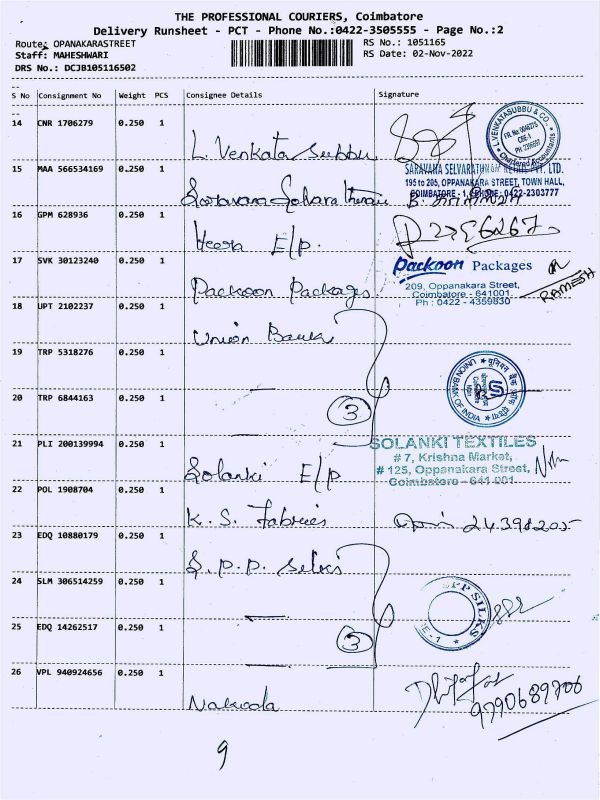 THE PROFESSIONAL COURIERS, Coimbatore
Delivery Runsheet - PCT - Phone No.:0422-3505555 - Page No.:2
Route: OPANAKARASTREET
RS No.: 1051165
Staff: MAHESHWARI
RS Date: 02-Nov-2022
DRS No.: DCJB105116502
S No Consignment No Weight PCS Consignee Details Signature
14 CNR 1706279 0.250 1
L. Venkata Subbu
L.VENKATASUBBU & CO.
Chartered Accountants
15 MAA 566534169 0.250 1
SARAVANA SELVARATHNAM RETAIL PVT. LTD.
195 to 205, OPPANAKARA STREET, TOWN HALL,
COIMBATORE - 1, PHONE: 0422-2303777
16 GPM 628936 0.250 1
Heera E/P.
17 SVK 30123240 0.250 1
Packoon Packages
Packoon Packages
209, Oppanakara Street,
Coimbatore - 641001.
Ph : 0422 - 4359830
RAMESH
18 UPT 2102237 0.250 1
Union Bank
19 TRP 5318276 0.250 1
UNION BANK OF INDIA
20 TRP 6844163 0.250 1
3
21 PLI 200139994 0.250 1
Solanki E/P
SOLANKI TEXTILES
# 7, Krishna Market,
# 125, Oppanakara Street,
Coimbatore - 641 001
22 POL 1908704 0.250 1
K. S. Fabrics
23 EDQ 10880179 0.250 1
S.P.P. Silks
24 SLM 306514259 0.250 1
SPP SILKS
25 EDQ 14262517 0.250 1
3
26 VPL 940924656 0.250 1
Nakoda
9790689706
9